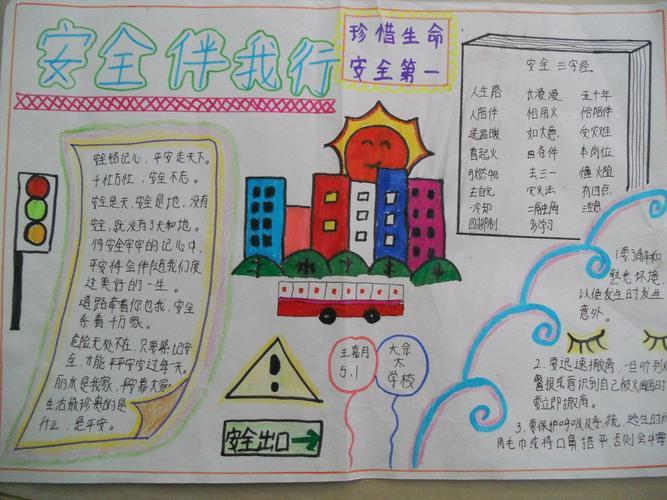 安全伴我行
珍惜生命
安全第一
安全铭记心，平安走天下。
千忙万忙，安全不忘。
安全是天，安全是地，没有
安全，就没有了天和地。
将安全牢牢的记心中，
平安将会伴随我们度
过美好的一生。
道路牵着你和我，安全
系着千万家。
危险无处不在，只要将记安
全，才能平平安安过每天。
生活最珍贵的是
什么，是平安。
安全出口
王嘉月
5.1
大佘
太
学校
安全 三字经
人生路 长漫漫 五千年
人陪伴 恰用火 恰陪伴
送温暖 如大意 受灾难
着起火 四条件 本岗位
易燃物 去三一 懂火险
去自完 灾火法 有四点
一冷却 二隔离 三窒息
四抑制 多学习
1.要了解和
熟悉环境，
以便发生时发生
意外。
2.要迅速撤离，一旦听到
警报或意识到自己被火围困时
要立即撤离。
3.要保护呼吸系统，逃生时
用毛巾或将口鼻捂平，否则会中毒